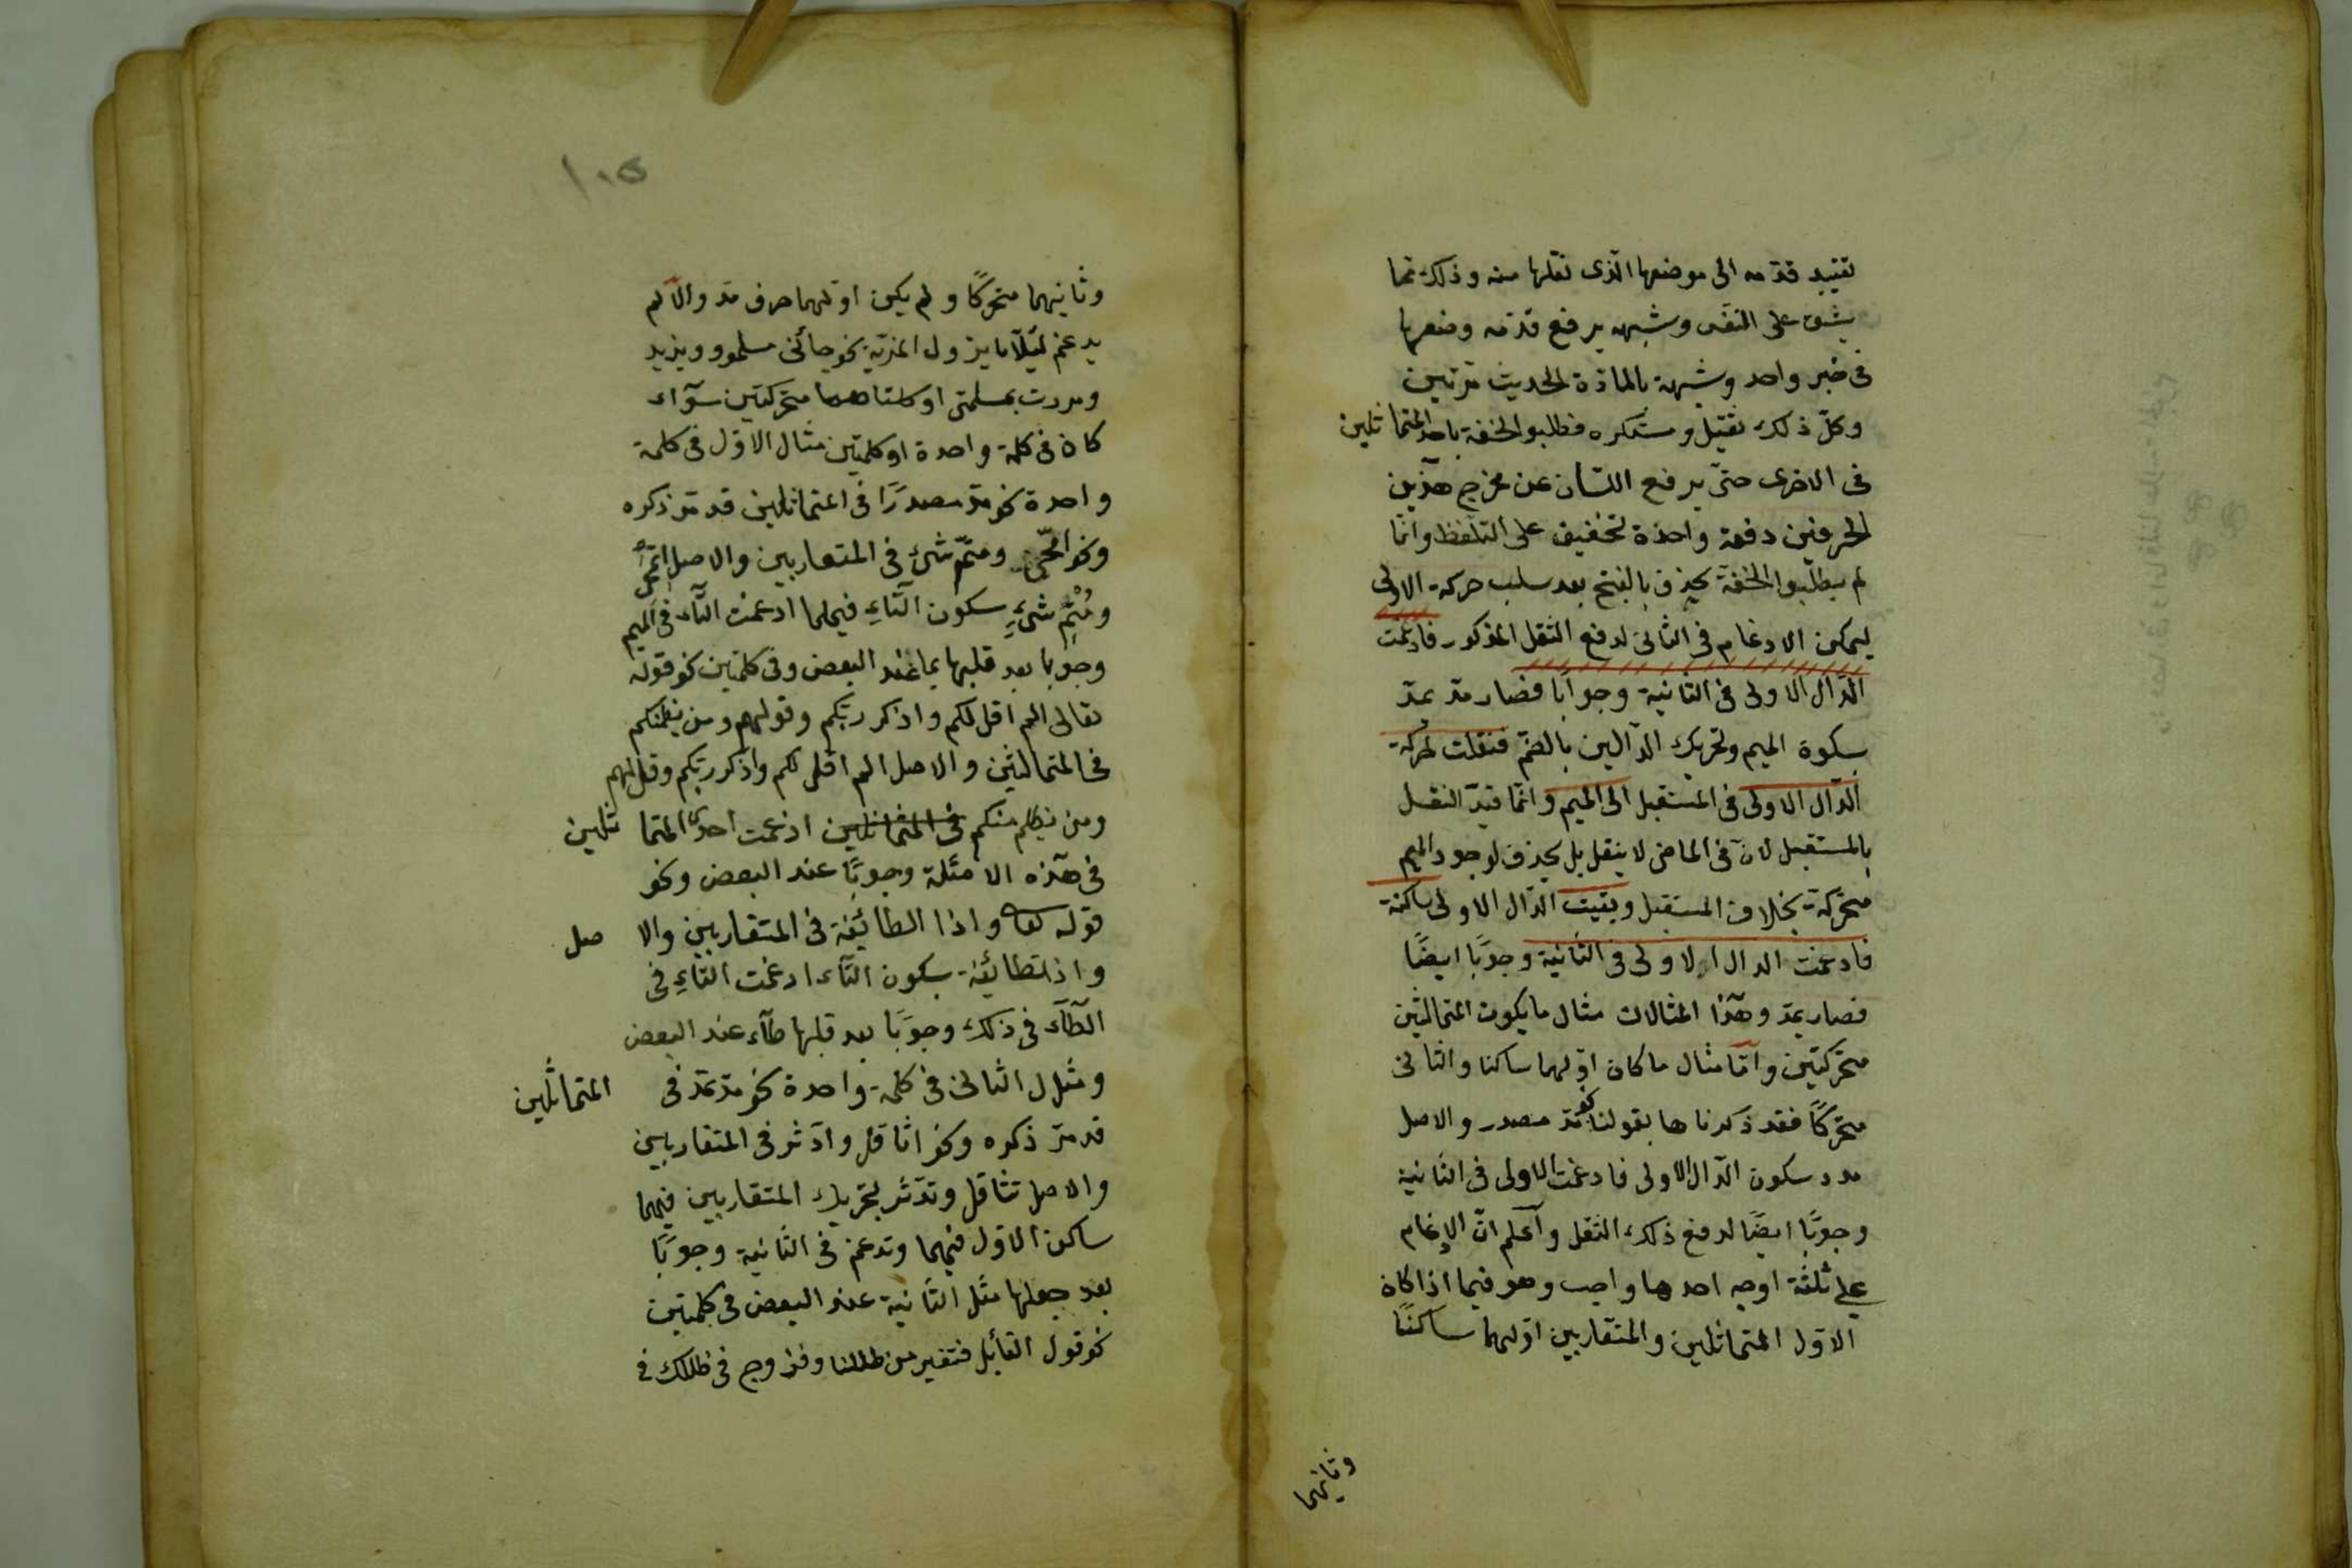 تقييد قدمه الى موضعها الذى نقلها منه وذلك مما
يشق على النفس وشبهه برفع قدمه وضعها
فى خبر واحد وشبهه بالمادة الحديث مرتين
وكلّ ذلك ثقيل ومستكره فطلبوا الخفة باحد المتماثلين
فى الاخرى حتى يرفع اللسان عن مخرج هذين
الحرفين دفعة واحدة تخفيف على التلفظ وانما
لم يطلبوا الخفة بحذف بالفتح بعد سلب حركة الاولى
ليمكن الادغام فى الثانى لدفع الثقل المذكور فادغمت
الدال الاولى فى الثانية وجوبا فصار مدّ يمدّ
بسكون الميم وتحريك الدالين بالضم فنقلت حركة
الدال الاولى فى المستقبل الى الميم وانما قيد النقل
بالمستقبل لانّ فى الماضى لا ينقل بل يحذف لوجود الميم
متحركة بخلاف المستقبل وبقيت الدال الاولى ساكنة
فادغمت الدال الاولى فى الثانية وجوبًا ايضًا
فصار يمدّ وهذا المثالان مثال ما يكون المتماثلين
متحركتين وامّا مثال ما كان اوّلهما ساكنا والثانى
متحركًا فقد ذكرناها بقولنا نحو مدّ مصدر والاصل
مدد سكون الدال الاولى فادغمت الاولى فى الثانية
وجوبًا ايضًا لدفع ذلك الثقل واعلم انّ الادغام
على ثلثة اوجه احدها واجب وهو فيما اذا كان
الاوّل المتماثلين والمتقاربين اوّلهما ساكنًا
وثانيهما
١٠٥
وثانيهما متحركًا ولم يكن اوّلهما حرف مدّ والا لم
يدغم لئلّا يزول المدية نحو جائنى مسلمو ويزيد
ومررت بمسلمى او كلتاهما متحركتين سوآء
كان فى كلمة واحدة او كلمتين مثال الاوّل فى كلمة
واحدة نحو مدّ مصدرًا فى المتماثلين قد مرّ ذكره
ونحو امّحى وممّ شئ فى المتقاربين والاصل
شئٍ سكون التاءِ فيهما ادغمت التاء فى الميم
وجوبا بعد قلبها ميما عند البعض وفى كلمتين نحو قوله
تعالى الم اقل لكم واذكر ربّكم وقولهم ومن يظلمنكم
فى المتماثلين والاصل الم اقل لكم واذكر ربّكم وقل لهم
ومن يظلم منكم فى المتماثلين ادغمت احدى المتماثلين
فى هذه الامثلة وجوبًا عند البعض ونحو
قوله تعالى واذا الطائفة فى المتقاربين والاصل
بسكون التاء ادغمت التاءِ فى
الطآء فى ذلك وجوبًا بعد قلبها طآء عند البعض
ومثال الثانى فى كلمة واحدة نحو مدّ يمدّ فى المتماثلين
قد مرّ ذكره ونحو اثاقل وادثر فى المتقاربين
والاصل تثاقل وتدثر بتحريك المتقاربين فيهما
ساكن الاوّل فيهما وتدغم فى الثانية وجوبًا
بعد جعلها مثل الثانية عند البعض فى كلمتين
نحو قول القائل من ظللنا فى ظللك فى